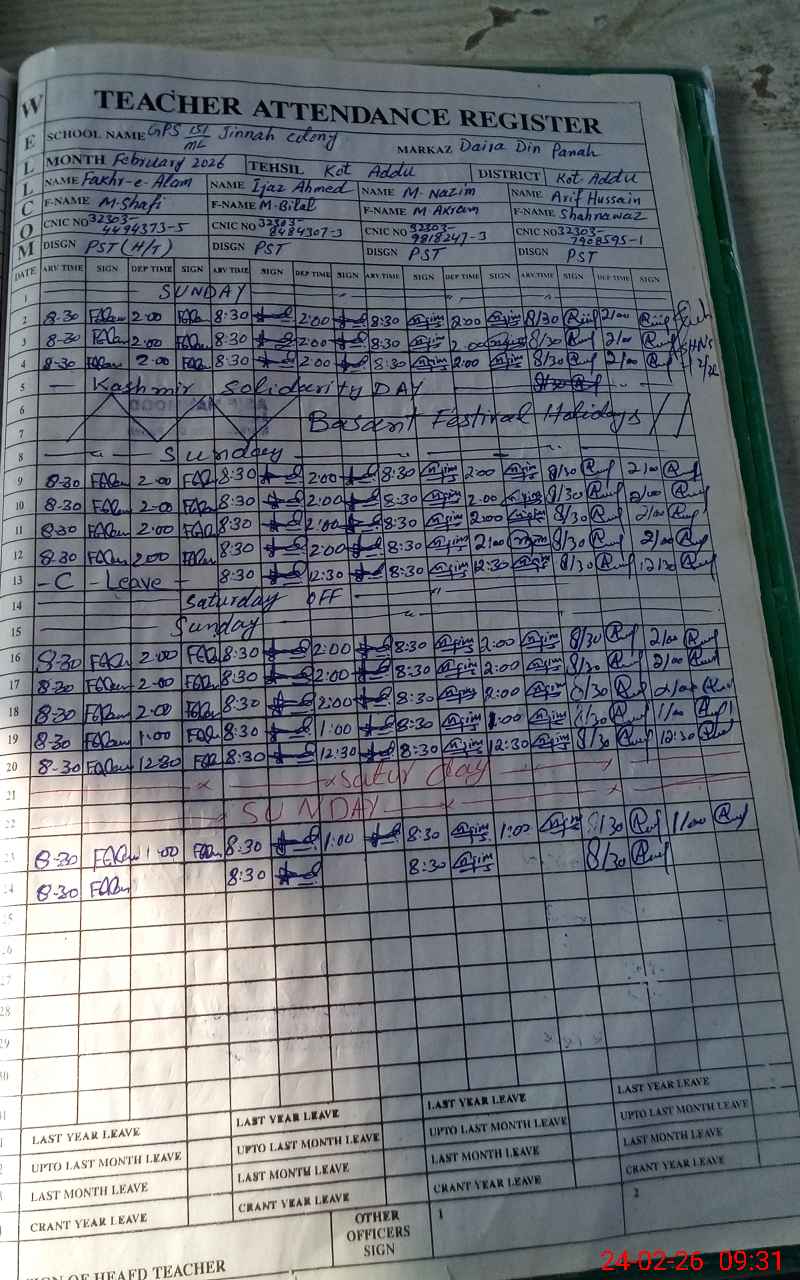 WELCOM
TEACHER ATTENDANCE REGISTER
SCHOOL NAME GPS 151/ML Jinnah colony MARKAZ Daira Din Panah
MONTH February 2026 TEHSIL Kot Addu DISTRICT Kot Addu
NAME Fakhr-e-Alam NAME Ijaz Ahmed NAME M. Nazim NAME Arif Hussain
F-NAME M.Shafi F-NAME M.Bilal F-NAME M Akram F-NAME Shahnawaz
CNIC NO 32303-4494373-5 CNIC NO 32303-8484307-3 CNIC NO 32303-9818247-3 CNIC NO 32303-7908595-1
DISGN PST (H/T) DISGN PST DISGN PST DISGN PST
DATE ARV TIME SIGN DEP TIME SIGN ARV TIME SIGN DEP TIME SIGN ARV TIME SIGN DEP TIME SIGN ARV TIME SIGN DEP TIME SIGN
1 SUNDAY
2 8-30 2:00 8:30 2:00 8:30 2:00 8/30 2/00
3 8-30 2:00 8:30 2:00 8:30 2:00 8/30 2/00
4 8-30 2:00 8:30 2:00 8:30 2:00 8/30 2/00
5 Kashmir Solidurity DAY
6
7 Basant Festival Holidays
8 Sunday
9 8-30 2:00 8:30 2:00 8:30 2:00 8/30 2/00
10 8-30 2:00 8:30 2:00 8:30 2:00 8/30 2/00
11 8-30 2:00 8:30 2:00 8:30 2:00 8/30 2/00
12 8-30 2:00 8:30 2:00 8:30 2:00 8/30 2/00
13 - C - Leave - 8:30 12:30 8:30 12:30 8/30 12/30
14 Saturday OFF
15 Sunday
16 8-30 2:00 8:30 2:00 8:30 2:00 8/30 2/00
17 8-30 2-00 8:30 2:00 8:30 2:00 8/30 2/00
18 8-30 2:00 8:30 2:00 8:30 2:00 8/30 2/00
19 8-30 1:00 8:30 1:00 8:30 1:00 8/30 1/00
20 8-30 12-30 8:30 12:30 8:30 12:30 8/30 12:30
21 Satur day
22 SUNDAY
23 8-30 1:00 8:30 1:00 8:30 1:00 8/30 1/00
24 8-30 8:30 8:30 8/30
25
26
27
28
29
30
31
LAST YEAR LEAVE LAST YEAR LEAVE LAST YEAR LEAVE LAST YEAR LEAVE
UPTO LAST MONTH LEAVE UPTO LAST MONTH LEAVE UPTO LAST MONTH LEAVE UPTO LAST MONTH LEAVE
LAST MONTH LEAVE LAST MONTH LEAVE LAST MONTH LEAVE LAST MONTH LEAVE
CRANT YEAR LEAVE CRANT YEAR LEAVE CRANT YEAR LEAVE CRANT YEAR LEAVE
SIGN OF HEAFD TEACHER OTHER OFFICERS SIGN 1 2
24-02-26 09:31